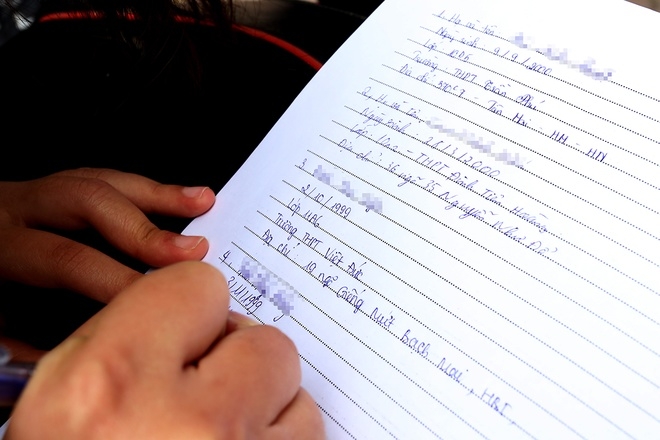 1. Họ và tên
Ngày sinh 9/9/2000
Lớp 10D6
Trường THPT Trần Phú
Địa chỉ - Tân Mai - HM - HN
2. Họ và tên
Ngày sinh: 28/3/2000
Lớp - THPT Đinh Tiên Hoàng
Địa chỉ: 16 ngõ 35 Nguyễn Như Đổ
3.
2/10/1999
Lớp 11A6
Trường THPT Việt Đức
Địa chỉ: 19 ngõ Giếng Mứt Bạch Mai, HBT,
4.
2/11/1999